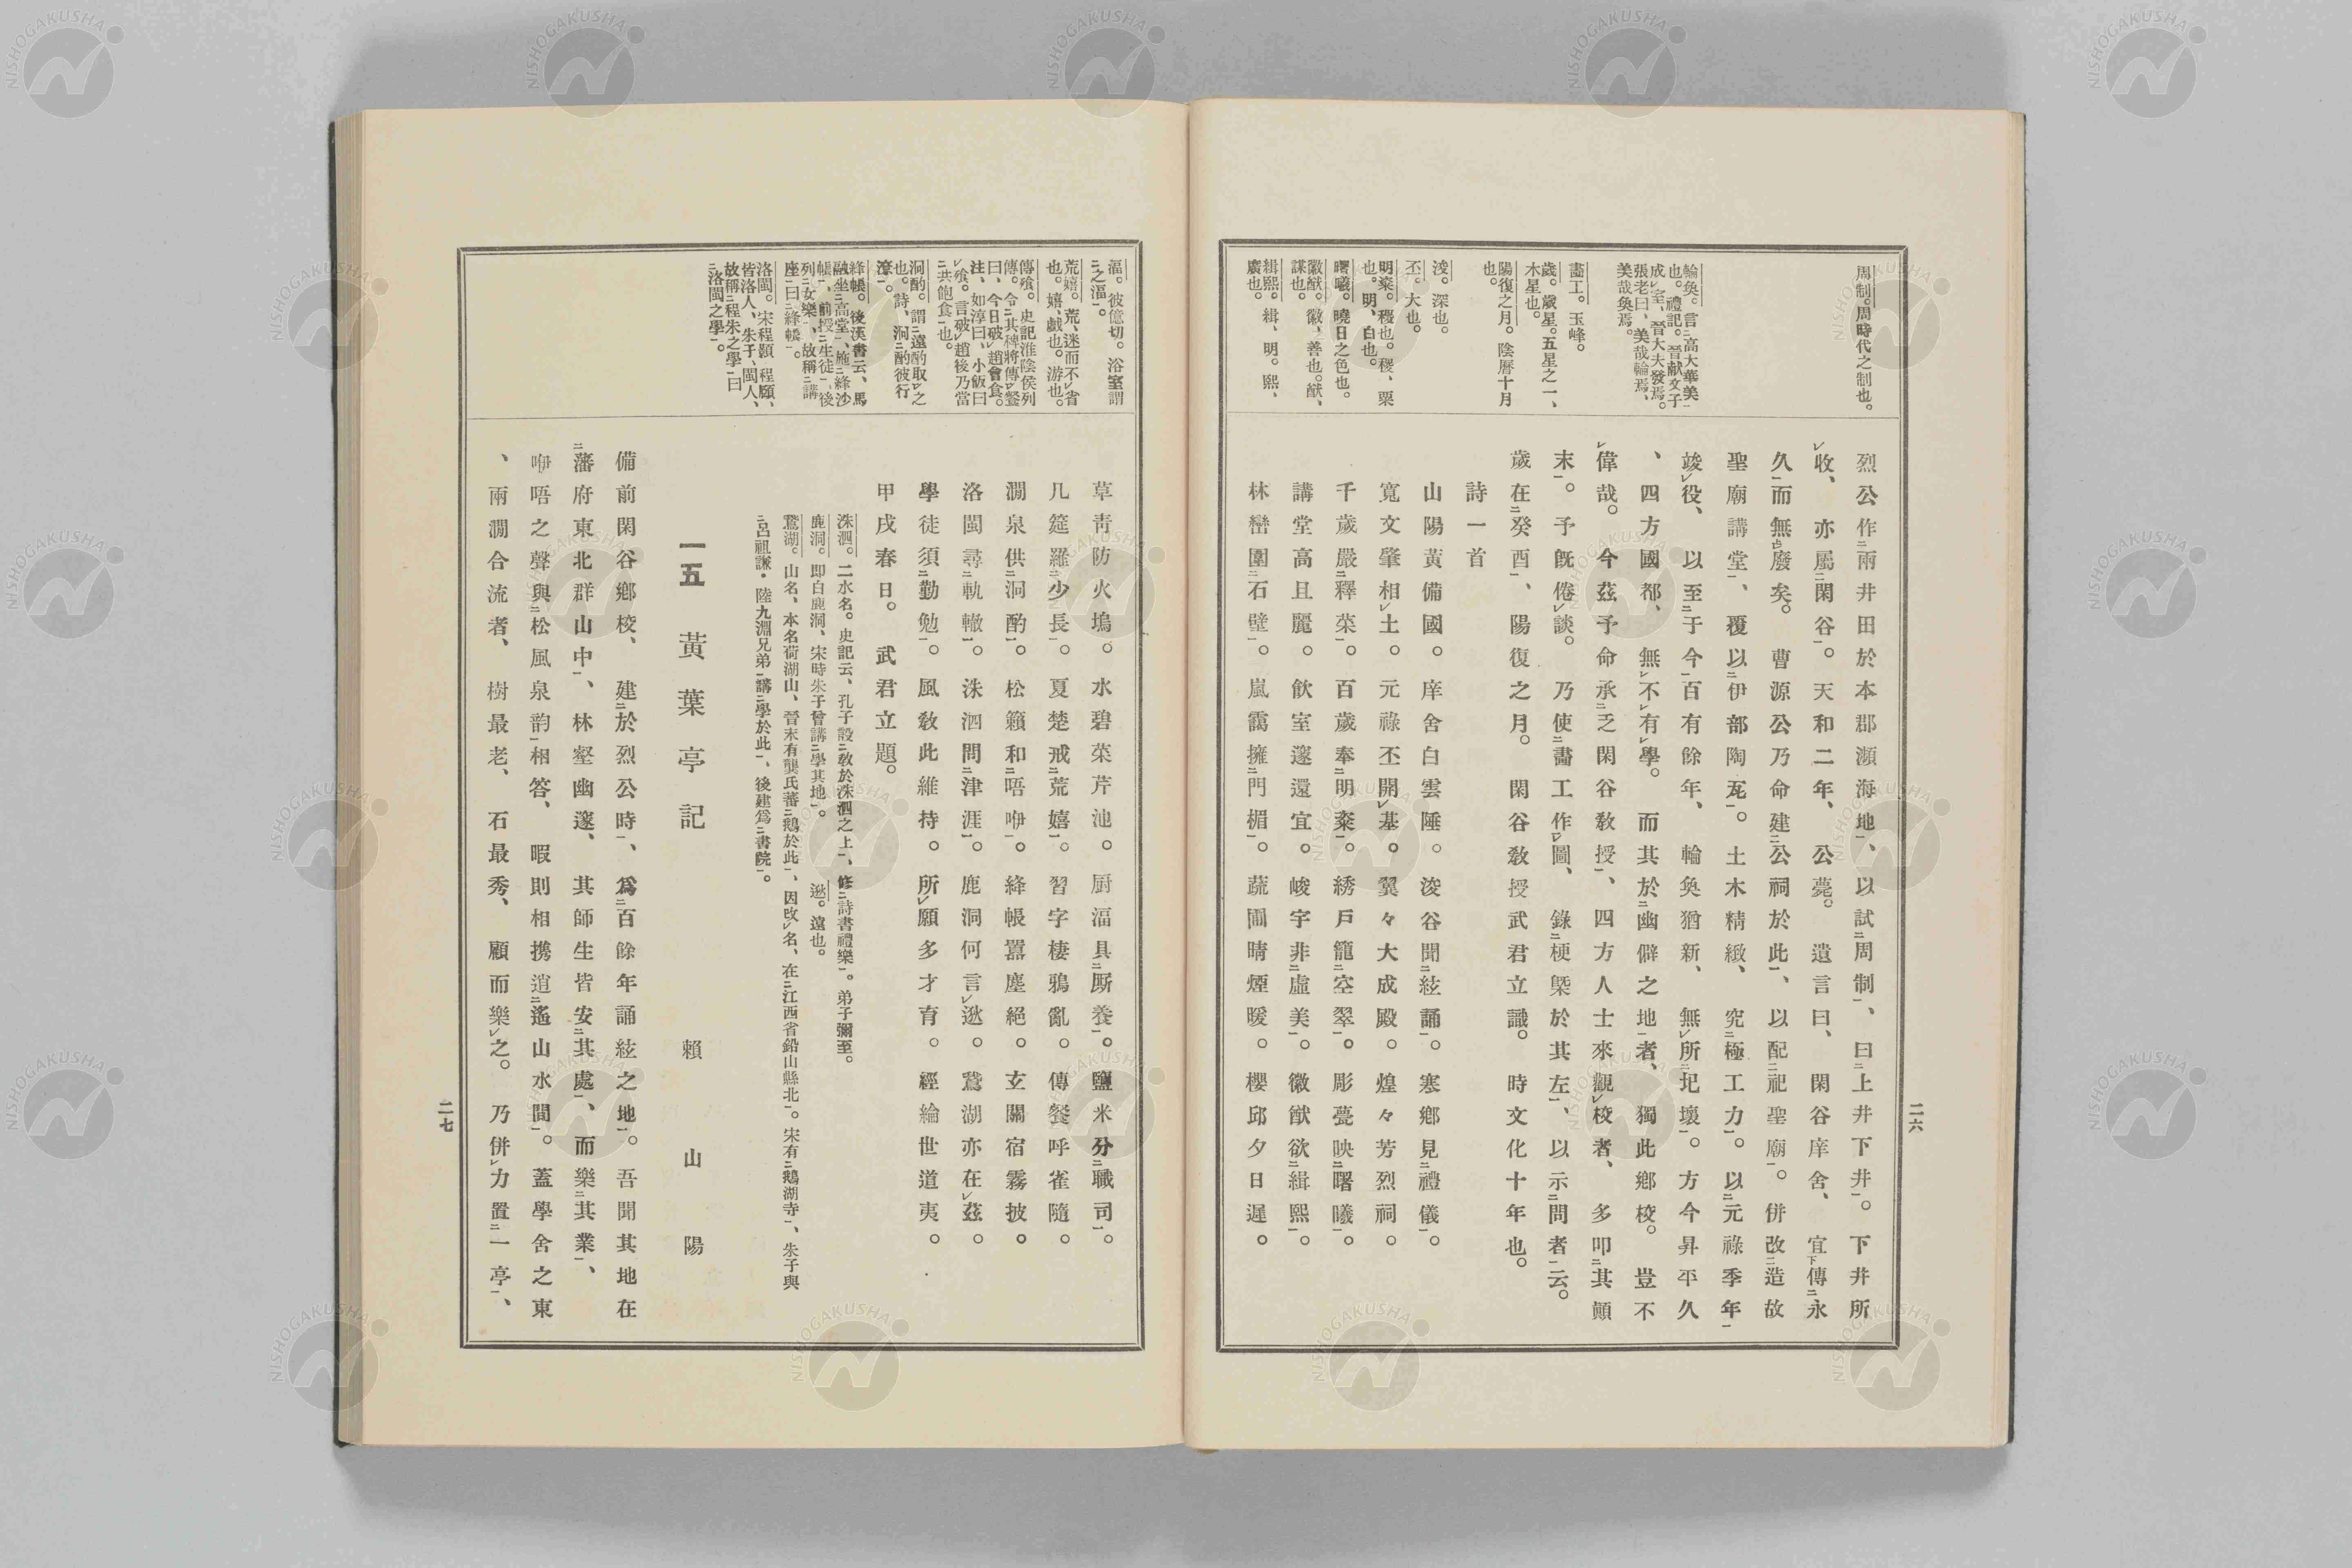 周制。周時代之制也。
輪奐。言高大華美
也。禮記。晉献文子
成室、晉大夫發焉。
張老曰、美哉輪焉、
美哉奐焉。
畫工。玉峰。
歲。歲星。五星之一、
木星也。
陽復之月。陰曆十月
也。
浚。深也。
丕。大也。
明粢。稷也。稷、粟
也。明、白也。
曙曦。曉日之色也。
徽猷。徽、善也。猷、
謀也。
緝熙。緝、明。熙、
廣也。
烈公作二兩井田於本郡瀕海地一、以試二周制一、曰二上井下井一。下井所
レ收、亦屬二閑谷一。天和二年、公薨。遺言曰、閑谷庠舍、宜下傳二永
久一而無上廢矣。曹源公乃命建二公祠於此一、以配二祀聖廟一。併改二造故
聖廟講堂一、覆以二伊部陶瓦一。土木精緻、究二極工力一。以二元祿季年一
竣レ役、以至二于今一百有餘年、輪奐猶新、無レ所二圮壞一。方今昇平久
、四方國都、無レ不レ有レ學。而其於二幽僻之地一者、獨此鄉校。豈不
レ偉哉。今茲予命承二乏閑谷敎授一、四方人士來觀レ校者、多叩二其顚
末一。予既倦レ談。乃使二畵工作一レ圖、錄二梗槩於其左一、以示二問者一云。
歲在二癸酉一、陽復之月。閑谷敎授武君立識。時文化十年也。
詩一首
山陽黃備國。庠舍白雲陲。浚谷聞二絃誦一。寒鄉見二禮儀一。
寬文肇相レ土。元祿丕開レ基。翼々大成殿。煌々芳烈祠。
千歲嚴二釋菜一。百歲奉二明粢一。綉戶籠二空翠一。彫甍映二曙曦一。
講堂高且麗。飲室邃還宜。峻宇非二虛美一。徽猷欲二緝熙一。
林巒圍二石壁一。嵐靄擁二門楣一。蔬圃晴煙暖。櫻邱夕日遲。
二六
湢。彼億切。浴室謂
二之湢一。
荒嬉。荒、迷而不レ省
也。嬉、戲也。游也。
傳飱。史記淮陰侯列
傳。令二其裨將傳一レ餐
曰、今日破レ趙會食。
注、如淳曰、小飯曰
レ飱。言破レ趙後乃當
二共飽食一也。
泂酌。謂二遠酌取レ之
也。詩、泂二酌彼行
潦一。
絳帳。後漢書云、馬
融坐二高堂一、施二絳沙
帳一、前授二生徒一、後
列二女樂一、故稱二講
座一曰二絳帳一。
洛閩。宋程顥、程頤、
皆洛人、朱子、閩人、
故稱二程朱之學一曰
二洛閩之學一。
草靑防火塢。水碧菜芹池。厨湢具二厮養一。鹽米分二職司一。
几筵羅二少長一。夏楚戒二荒嬉一。習字棲鴉亂。傳餐呼雀隨。
澗泉供二泂酌一。松籟和二唔咿一。絳帳囂塵絕。玄關宿霧披。
洛閩尋二軌轍一。洙泗問二津涯一。鹿洞何言レ逖。鵞湖亦在レ茲。
學徒須二勤勉一。風敎此維持。所レ願多才育。經綸世道夷。
甲戌春日。武君立題。
洙泗。二水名。史記云、孔子設二敎於洙泗之上一、修二詩書禮樂一。弟子彌至。
鹿洞。即白鹿洞、宋時朱子曾講二學其地一。 逖。遠也。
鵞湖。山名、本名荷湖山、晉末有龔氏蓄二鵝於此一、因改レ名、在二江西省鉛山縣北一。宋有二鵝湖寺一、朱子與
二呂祖謙・陸九淵兄弟一講二學於此一、後建爲二書院一。
一五 黃葉亭記 賴山陽
備前閑谷鄉校、建二於烈公時一、爲二百餘年誦絃之地一。吾聞其地在
二藩府東北群山中一、林壑幽邃、其師生皆安二其處一、而樂二其業一、
咿唔之聲與二松風泉韵一相答、暇則相携逍二遙山水間一。蓋學舍之東
、兩澗合流者、樹最老、石最秀、顧而樂レ之。乃併レ力置二一亭一、
二七